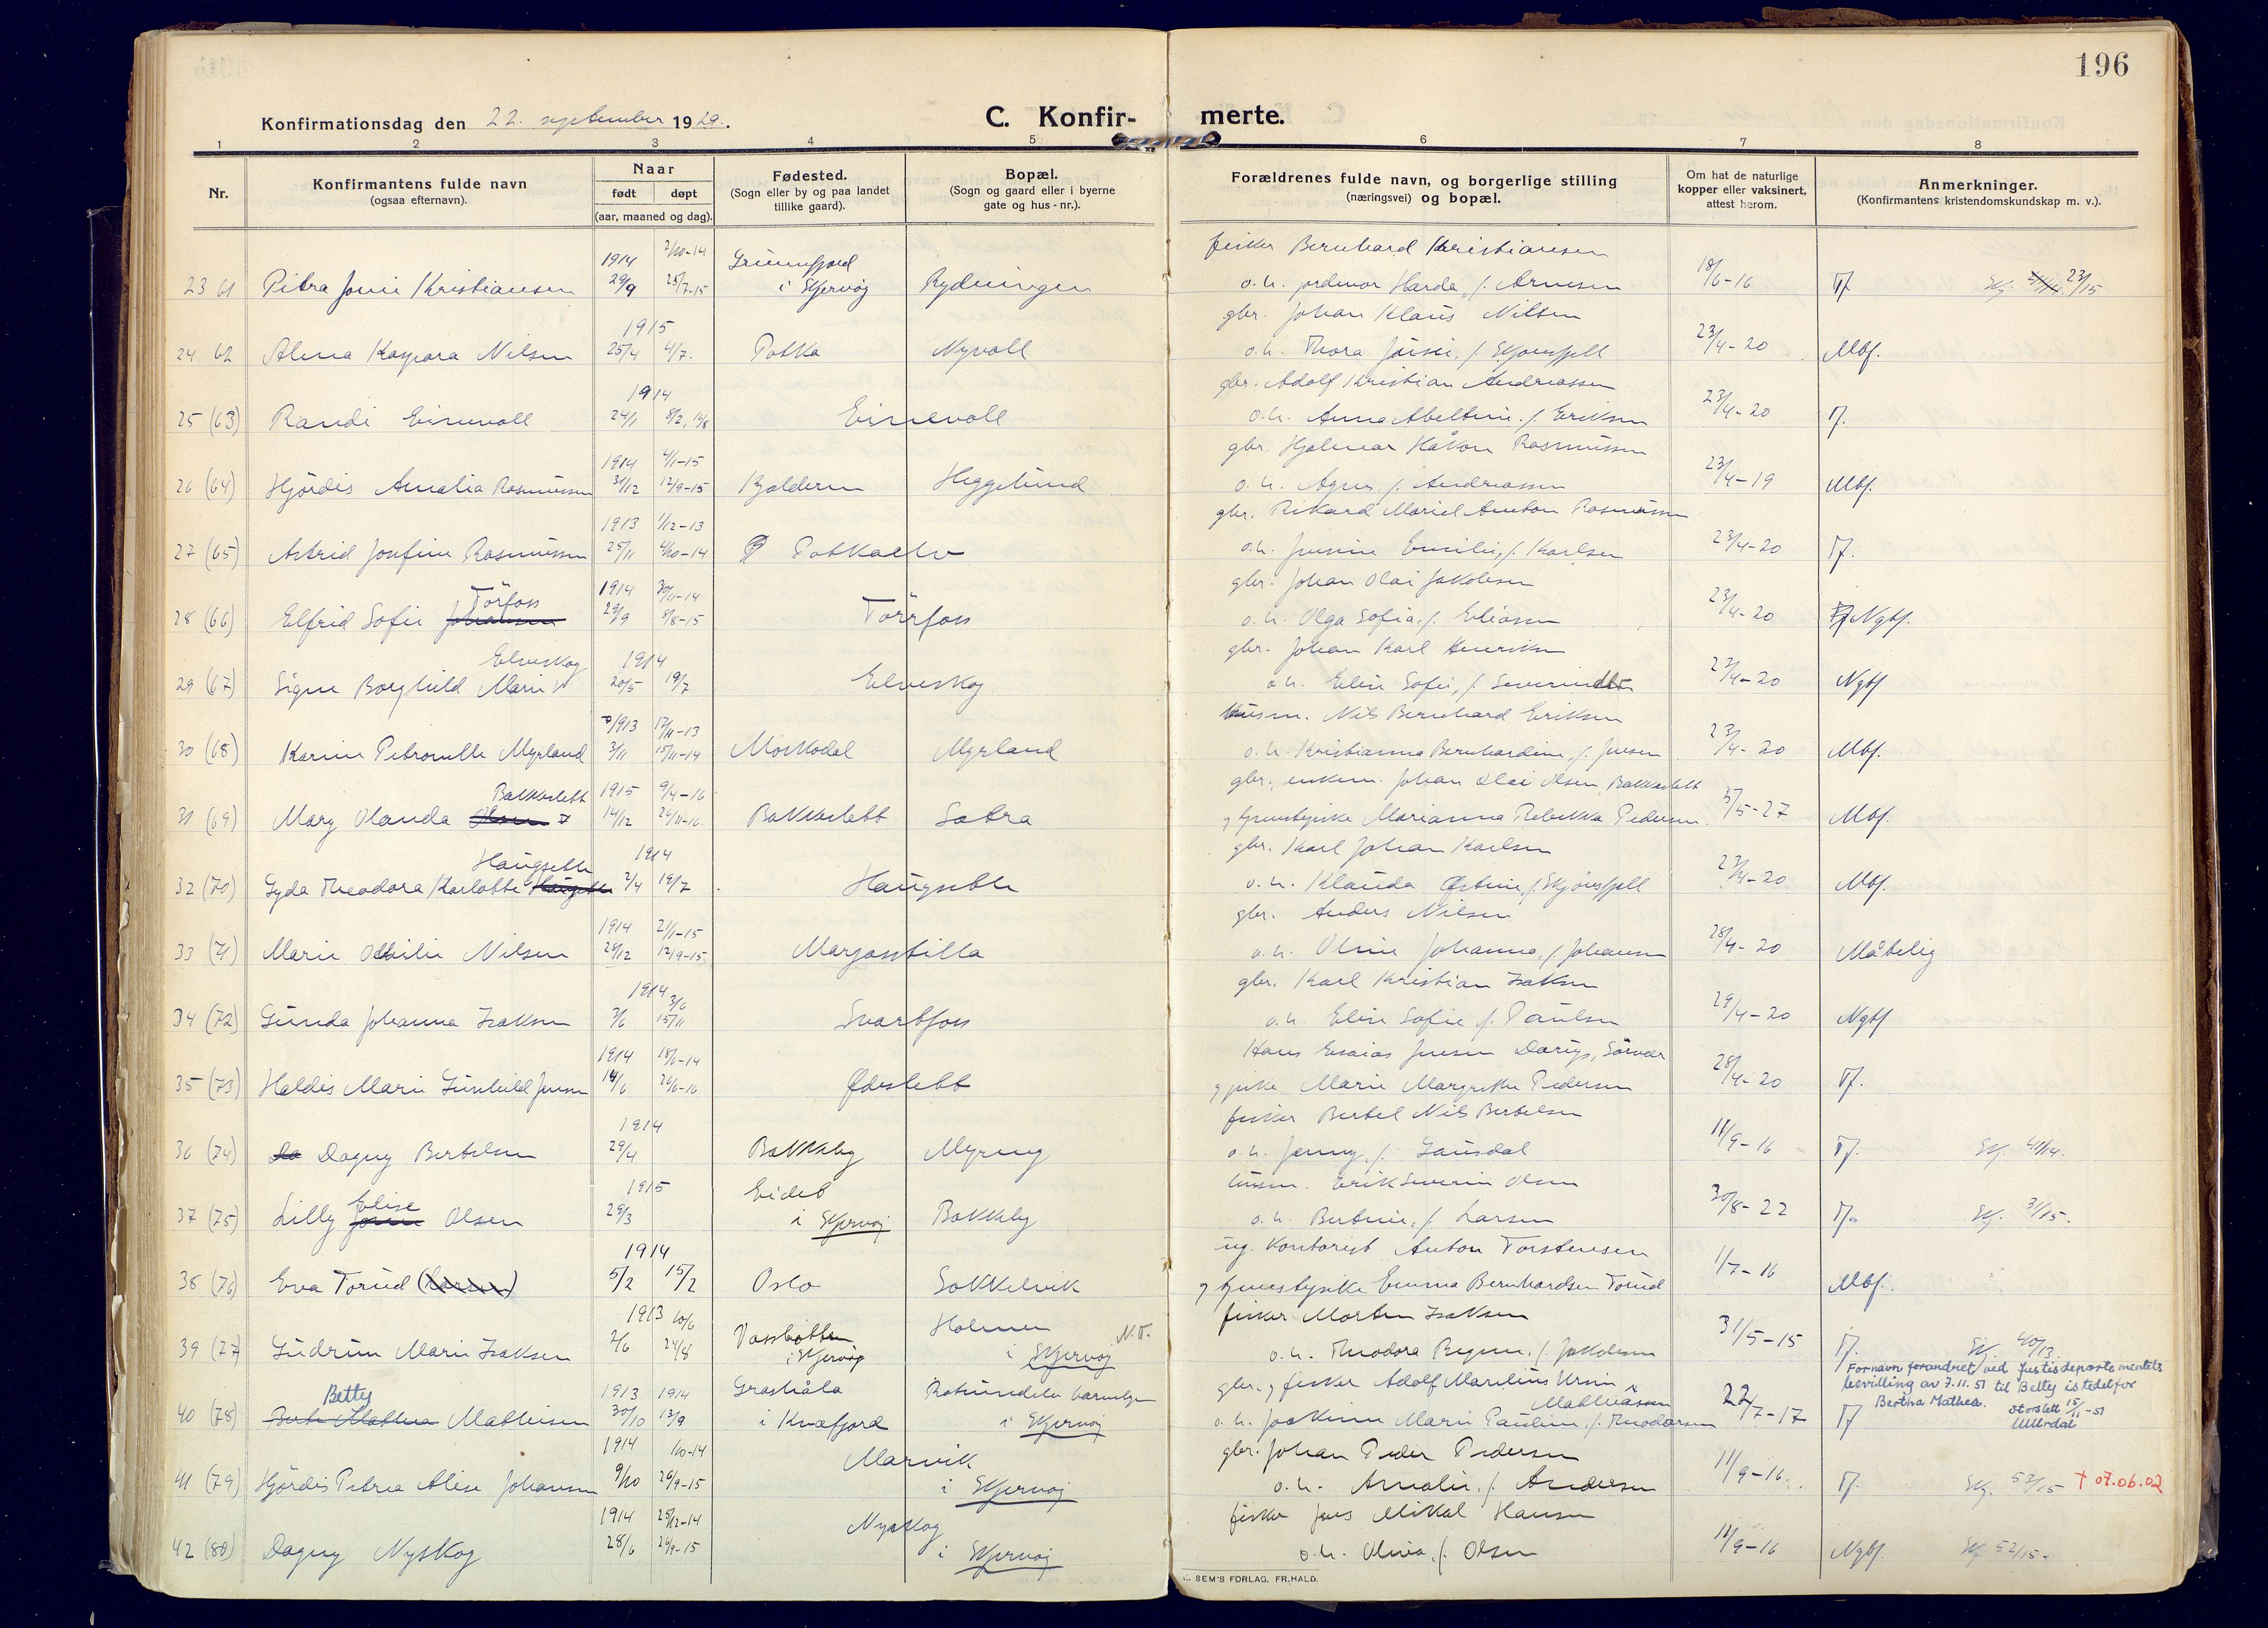 196
Konfirmationsdag den 22. september 1929.
C. Konfir- merte.
1 2 3 4 5 6 7 8
Nr.
Konfirmantens fulde navn
(ogsaa efternavn).
Naar
født døpt
(aar, maaned og dag).
Fødested.
(Sogn eller by og paa landet
tillike gaard).
Bopæl.
(Sogn og gaard eller i byerne
gate og hus-nr.).
Forældrenes fulde navn, og borgerlige stilling
(næringsvei) og bopæl.
Om hat de naturlige
kopper eller vaksinert,
attest herom.
Anmerkninger.
(Konfirmantens kristendomskundskap m. v.).
1914 2/10-14 fisker Bernhard Kristiansen
23 61 Petra Kristiansen 29/9 25/7-15 i Skjervøy Rydningen o.h. jordmor Harda, f. Arnesen 18/6-16 Tf. Skj. 23/15
1915 gbr. Johan Klaus Nilsen
24 62 Alma Kaspara Nilsen 25/4 4/7. Potka Nyvoll o.h. Thora f. Skjønsfjell 23/4-20 Mbf.
1914 gbr. Adolf Kristian Andreassen
25 (63) Randi Einevoll 24/1 8/2, 14/8 Einevoll o.h. Anna Abeltine f. Eriksen 23/4-20 Tf.
1914 4/1-15 gbr. Hjalmar Håkon Rasmussen
26 (64) Hjördis Amalia Rasmussen 31/12 12/9-15 Kjelderen Heggelund o.h. Agnes f. Andreassen 23/4-19 Mbf.
1913 1/12-13 gbr. Rikard Mariel Amton Rasmussen
27 (65) Astrid Josefine Rasmussen 25/11 4/10-14 Potkaelv o.h. Emilie, f. Karlsen 23/4-20 Tf.
Törfoss 1914 30/11-14 gbr. Johan Olai Jakobsen
28 (66) Elfrid Sofie Johansen 29/9 8/8-15 Törrfoss o.h. Olga Sofia, f. Eliassen 23/4-20 Tf Ngtf.
Elveskog 1914 gbr. Johan Karl Henriksen
29 (67) Signe Borghild Marie 20/5 19/7 Elveskog o.h. Elise Sofie, f. Severindtr 23/4-20 Ngtf
1913 17/11-13 husm. Nils Bernhard Eriksen
30 (68) Karine Petronelle Myrland 3/11 15/11-14 Moskodal Myrland o.h. Kristianna Bernhardine f. Jensen 23/4-20 Mbf.
Bakkeslett 1915 9/4-16 gbr. enkem. Johan Olai Olsen, Bakkeslett
31 (69) Mary Olanda Olsen 14/12 26/11-16. Bakkeslett Sætra g tjenestepike Marianna Rebekka Pedersen 31/5-27 Mbf.
Haugseth 1914 gbr. Karl Johan Karlsen
32 (70) Lyda Theodora Karlotte Haugseth 2/4 19/7 Haugseth o.h. Klauda Østine, f. Skjønsfjell 23/4-20 Mbf.
1914 2/1-15 gbr. Anders Nilsen
33 (71) Marie Othilie Nilsen 28/12 12/9-15 Margasstilla o.h. Oline Johanna, f. Johansen 28/4-20 Måtelig
1914 3/6 gbr. Karl Kristian Isaksen
34 (72) Gunda Johanna Isaksen 3/6 15/11 Svartfoss o.h. Elise Sofie, f. Paulsen 29/4-20 Ngtf
1914 18/6-14 Hans Esaias Jensen Sörvær
35 (73) Haldis Marie Gunhild Jensen 14/6 26/6-16 Ørreslett g pike Marie Margrethe Pedersen 28/4-20 Tf.
1914 fisker Bertel Nils Bertelsen
36 (74) Da Dagny Bertelsen 29/4 Bakkeby Myreng o.h. Jenny, f. Gausdal 11/9-16 Tf. Skj. 41/14.
Elise 1915 Eidet husm. Erik Severin Olsen
37 (75) Lilly Olsen 29/3 i Skjervøy Bakkeby o.h. Bertine, f. Larsen 30/8-22 Tf. Skj. 31/15.
1914 ug. Kontorist Anton Torstensen
38 (76) Eva Torud (Larsen) 5/2 15/2 Oslo Sokkelvik g tjenestepike Emma Bernhardsen Torud 1/7-16 Mbf.
1913 10/6 Vassbotten Holmen N.T. fisker Morten Isaksen
39 (77) Gudrun Marie Isaksen 2/6 24/8 i Skjervøy i Skjervøy o.h. Theodora Regine, f. Jakobsen 31/5-15 Tf. Skj. 40/13.
Fornavn forandret ved justisdepartementets
bevilling av 7.11.51 til Betty istedetfor
Bertha Mathea. Storslett 15/11-51
Betty 1913 1914 Grashola Rotsundelv barnehjem gbr. g fisker Adolf Marelius Ursin Mathiassen
40 (78) Berta Mathea Mathisen 30/10 13/9 i Kvæfjord i Skjervøy o.h. Joakime Marie Pauline, f. Theodorsen 22/7-17 Tf
1914 10-14 Marvik gbr. Johan Peder Pedersen
41 (79) Hjördis Petrea Alise Johansen 9/10 26/9-15 i Skjervøy o.h. Amalie, f. Andersen 11/9-16. Tf. Skj. 52/15 † 07.06.02
1914 25/12-14 Nyskog fisker Jens Mikal Hansen
42 (80) Dagny Nyskog 28/6 26/9-15 i Skjervøy o.h. Olivia, f. Olsen 11/9-16 Ngtf. Skj 52/15-
SEM'S FORLAG, FR.HALD.